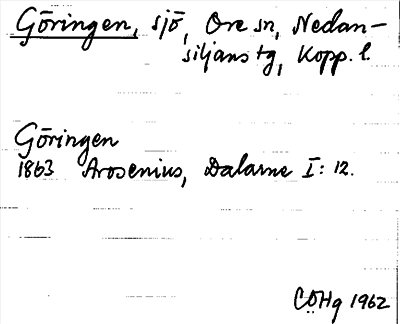 Göringen, sjö, Ore sn, Nedan-
siljans tg, Kopp. l.
Göringen
1863 Arosenius, Dalarne I: 12.
CÖHg 1962